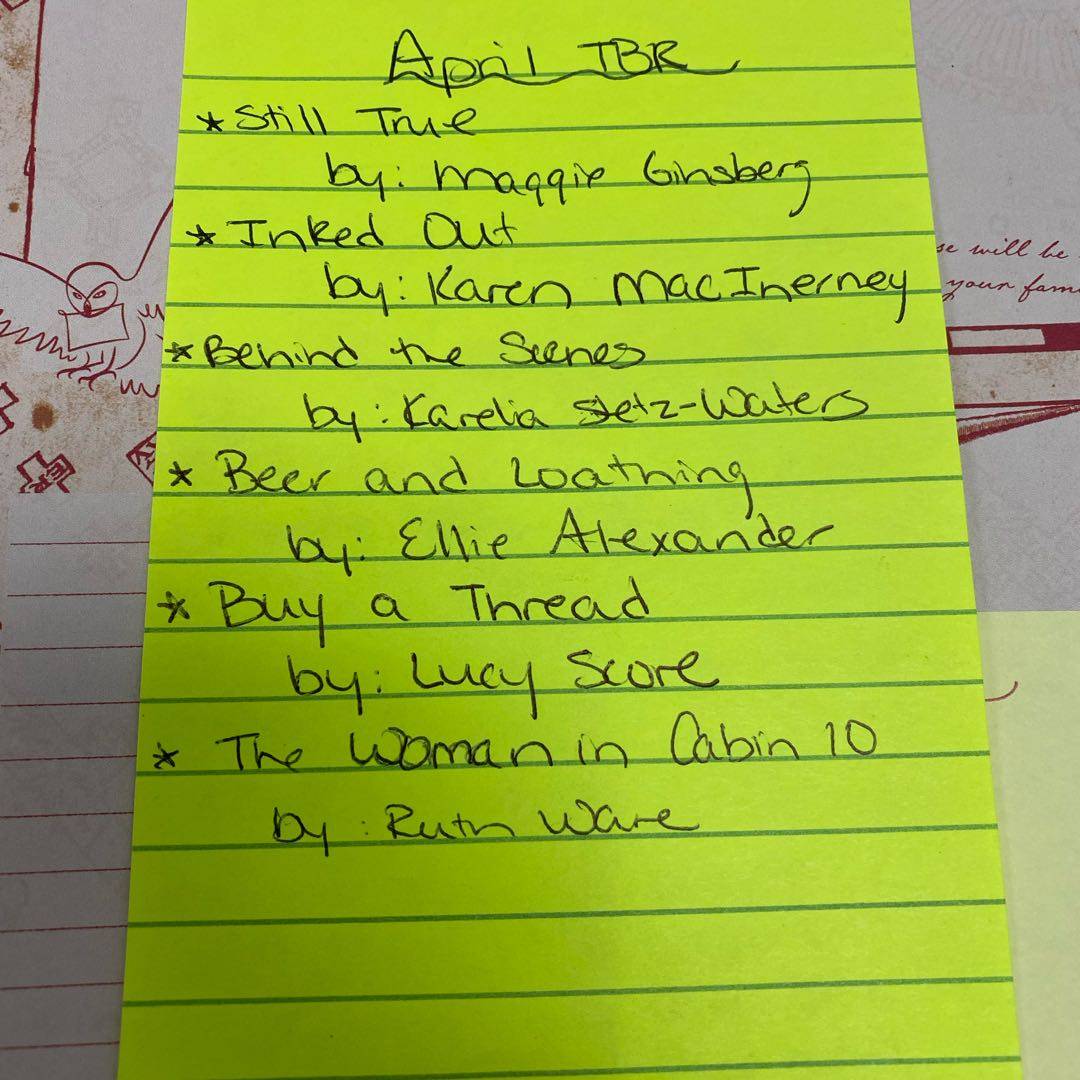 April TBR
* Still True
by: Maggie Ginsberg
* Inked Out
by: Karen MacInerney
* Behind the Scenes
by: Karelia Stetz-Waters
* Beer and Loathing
by: Ellie Alexander
* Buy a Thread
by: Lucy Score
* The Woman in Cabin 10
by: Ruth Ware
se will be
your fam